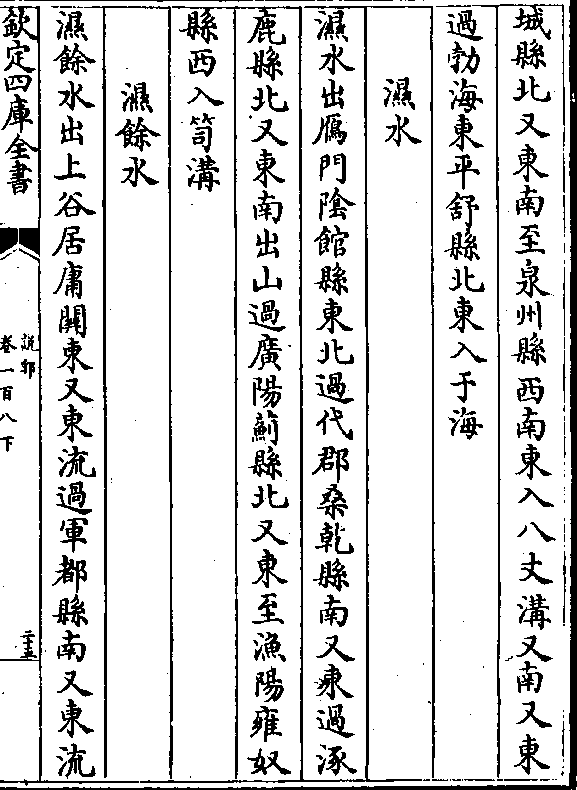 城縣北又東南至泉州縣西南東入八丈溝又南又東
過勃海東平舒縣北東入于海
濕水
濕水出鴈門陰館縣東北過代郡桑乾縣南又東過涿
鹿縣北又東南出山過廣陽薊縣北又東至漁陽雍奴
縣西入笥溝
濕餘水
濕餘水出上谷居庸關東又東流過軍都縣南又東流
欽定四庫全書
說郛
卷一百八下
二十五